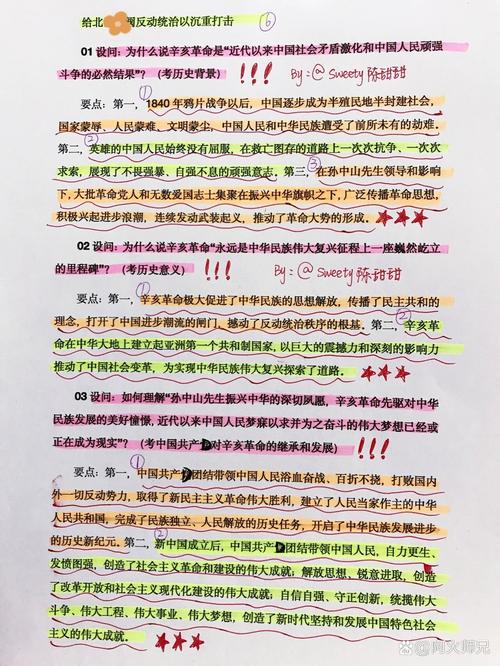 给北阀反动统治以沉重打击 ⑥
01 设问：为什么说辛亥革命是“近代以来中国社会矛盾激化和中国人民顽强
斗争的必然结果”？（考历史背景） !!! By:@Sweety陈甜甜
①
要点：第一，1840年鸦片战争以后，中国逐步成为半殖民地半封建社会，
国家蒙辱、人民蒙难、文明蒙尘，中国人民和中华民族遭受了前所未有的劫难。
第二，②英雄的中国人民始终没有屈服，在救亡图存的道路上一次次抗争、一次次
求索，展现了不畏强暴、自强不息的顽强意志。第三，③在孙中山先生领导和影响
下，大批革命党人和无数爱国志士集聚在振兴中华旗帜之下，广泛传播革命思想，
积极兴起进步浪潮，连续发动武装起义，推动了革命大势的形成。★★★
02 设问：为什么说辛亥革命“永远是中华民族伟大复兴征程上一座巍然屹立
的里程碑”？（考历史意义） !!! By:@Sweety陈甜甜
要点：第一，①辛亥革命极大促进了中华民族的思想解放，传播了民主共和的
理念，打开了中国进步潮流的闸门，撼动了反动统治秩序的根基。第二，②辛亥革
命在中华大地上建立起亚洲第一个共和制国家，以巨大的震撼力和深刻的影响力
推动了中国社会变革，为实现中华民族伟大复兴探索了道路。★★★
03 设问：如何理解“孙中山先生振兴中华的深切夙愿，辛亥革命先驱对中华
民族发展的美好憧憬，近代以来中国人民梦寐以求并为之奋斗的伟大梦想已经或
正在成为现实”？（考中国共产对辛亥革命的继承和发展） !!!
①
要点：第一，中国共产团结带领中国人民浴血奋战、百折不挠，打败国内
外一切反动势力，取得了新民主主义革命伟大胜利，建立了人民当家作主的中华
人民共和国，完成了民族独立、人民解放的历史任务，开启了中华民族发展进步
的历史新纪元。第二，②新中国成立后，中国共产团结带领中国人民，自力更生、
发愤图强，创造了社会主义革命和建设的伟大成就；解放思想、锐意进取，创造
了改革开放和社会主义现代化建设的伟大成就；自信自强、守正创新，统揽伟大
斗争、伟大工程、伟大事业、伟大梦想，创造了新时代坚持和发展中国特色社会
主义的伟大成就。★★★
知乎 @阿火师兄